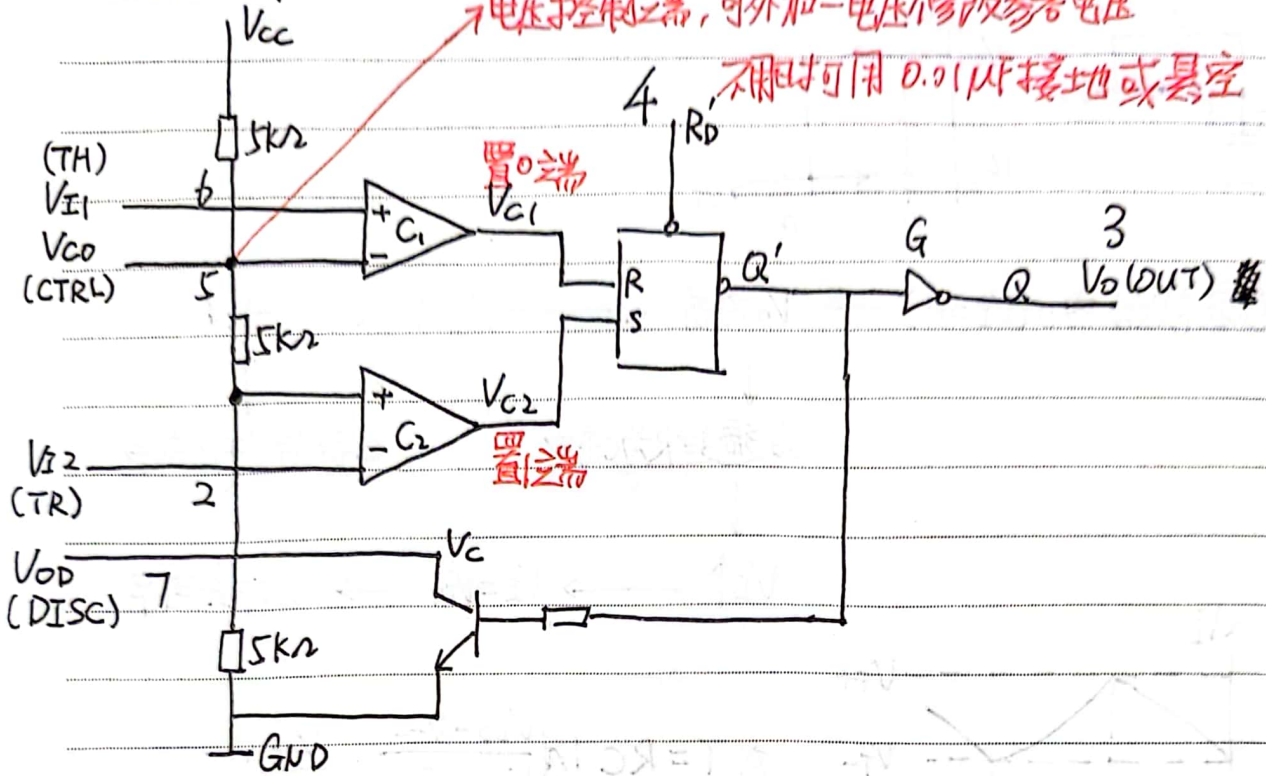 电压控制端,可外加一电压修改参考电压
VCC
不用时可用 0.01μF接地或悬空
4
RD'
5KΩ
(TH)
VI1
6
置0端
VC1
+
C1
-
VCO
(CTRL)
5
R
S
Q'
G
Q
3
VO(OUT)
5KΩ
+
C2
-
VC2
置1端
VI2
(TR)
2
VOD
(DISC)
7
VC
5KΩ
GND